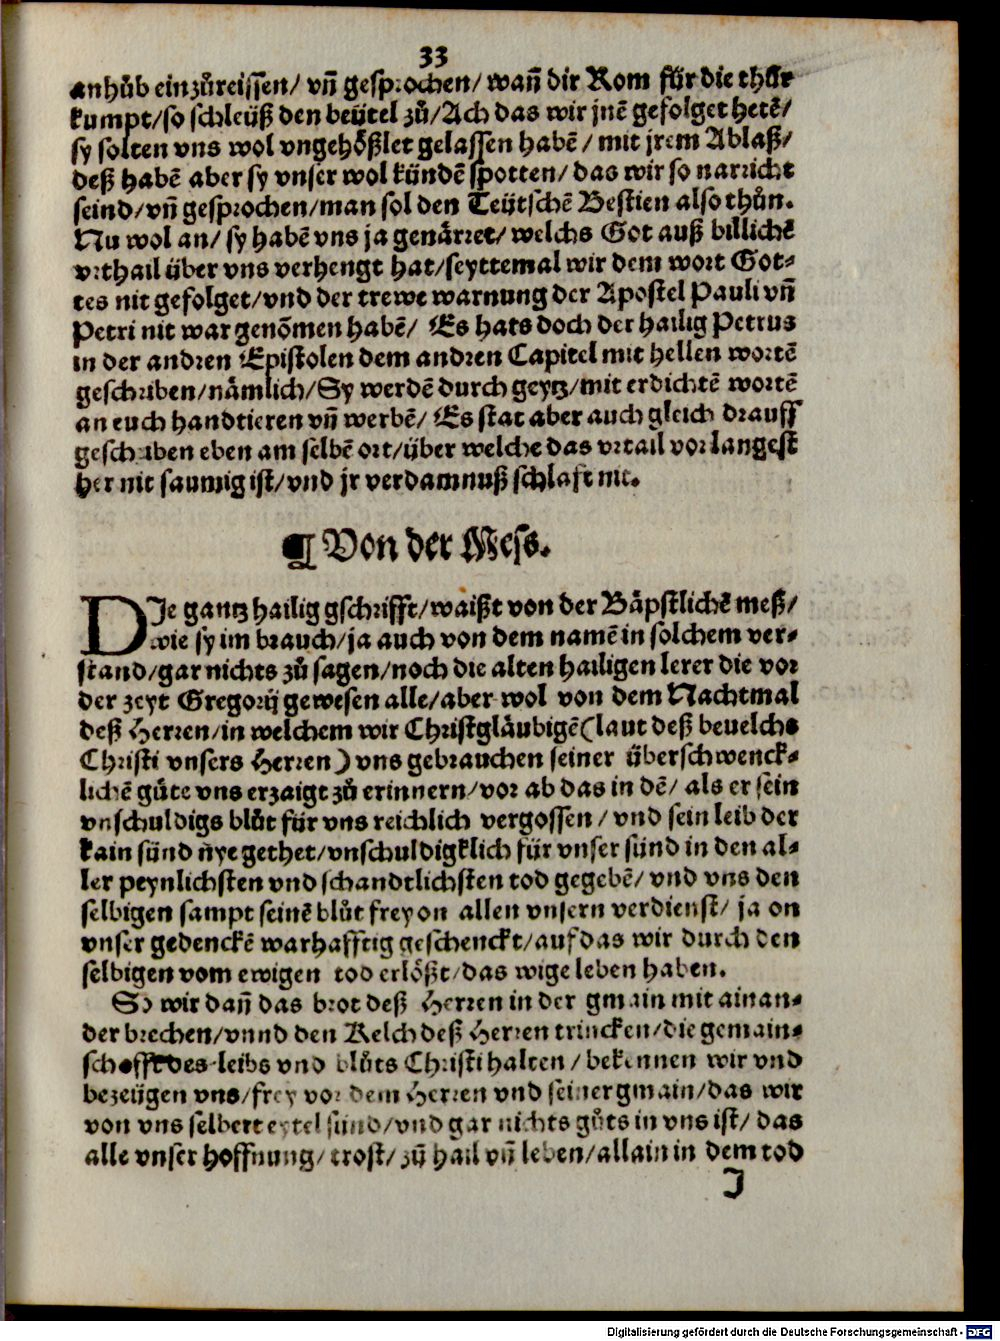 33
anhůb einzůreissen/ vñ gesprochen/ wañ dir Rom für die thür
kumpt/so schleüß den beütel zů/Ach das wir jnē gefolget hetē/
sy solten vns wol vngehößlet gelassen habē/ mit jrem Ablaß/
deß habē aber sy vnser wol kündē spotten/ das wir so narricht
seind/vñ gesprochen/man sol den Teütschē Bestien also thůn.
Nu wol an/ sy habē vns ja genårret/ welchs Got auß billichē
vrthail über vns verhengt hat/seyttemal wir dem wort Got⸗
tes nit gefolget/vnd der trewe warnung der Apostel Pauli vñ
Petri nit war genōmen habē/ Es hats doch der hailig Petrus
in der andren Epistolen dem andren Capitel mit hellen wortē
geschriben/nåmlich/Sy werdē durch geytz/mit erdichtē wortē
an euch handtieren vñ werbē/ Es stat aber auch gleich drauff
geschriben eben am selbē ort/über welche das vrtail vor langest
her nit saumig ist/vnd jr verdamnuß schlaft nit.
¶ Von der Mess.
DJe gantz hailig gschrifft/waißt von der Båpstlichē meß/
wie sy im brauch/ja auch von dem namē in solchem ver⸗
stand/gar nichts zů sagen/noch die alten hailigen lerer die vor
der zeyt Gregorij gewesen alle/aber wol von dem Nachtmal
deß Herren/in welchem wir Christglåubigē(laut deß beuelchs
Christi vnsers Herren)vns gebrauchen seiner überschwenck⸗
lichē güte vns erzaigt zů erinnern/vor ab das in dē/ als er sein
vnschuldigs blůt für vns reichlich vergossen/ vnd sein leib der
kain sünd nye gethet/vnschuldigklich für vnser sünd in den al⸗
ler peynlichsten vnd schandtlichsten tod gegebē/ vnd vns den
selbigen sampt seinē blůt frey on allen vnsern verdienst/ ja on
vnser gedenckē warhafftig geschenckt/auf das wir durch den
selbigen vom ewigen tod erlößt/das wige leben haben.
So wir dañ das brot deß Herren in der gmain mit ainan⸗
der brechen/vnnd den Kelch deß Herren trincken/die gemain⸗
schafft des leibs vnd blůts Christi halten/ bekennen wir vnd
bezeügen vns/frey vor dem Herren vnd seiner gmain/das wir
von vns selbert eytel sünd/vnd gar nichts gůts in vns ist/ das
alle vnser hoffnung/trost/zů hail vñ leben/allain in dem tod
J
Digitalisierung gefördert durch die Deutsche Forschungsgemeinschaft - DFG